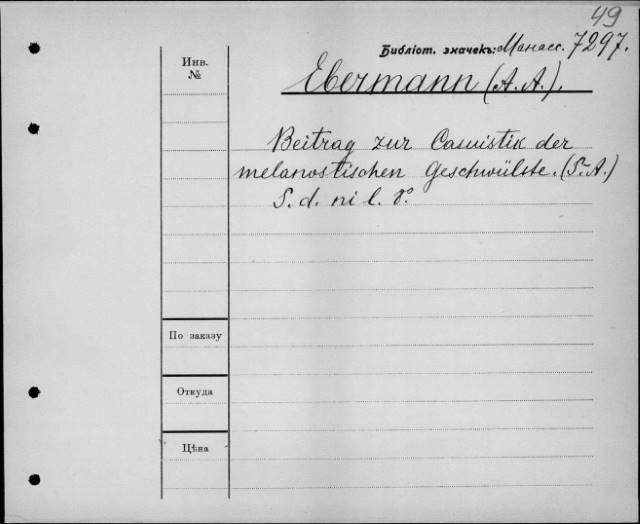 49
Библіот. значекъ: Манасс. 7297.
Инв. №
Ebermann (A. A.).
Beitrag zur Casuistik der
melanostischen Geschwülste. (S.-A.)
S. d. ni l. 8°
По заказу
Откуда
Цѣна